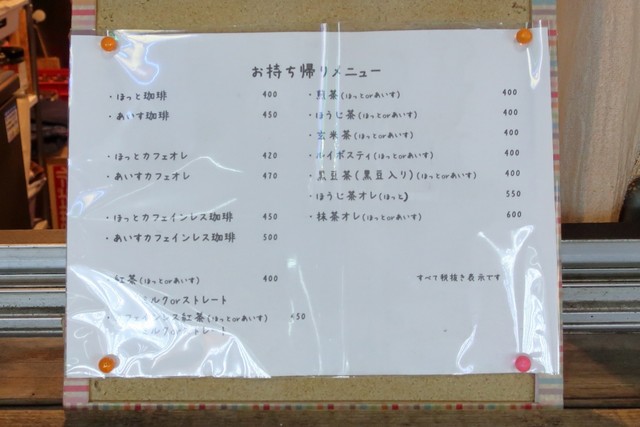 お持ち帰りメニュー
・ほっと珈琲 400
・あいす珈琲 450
・ほっとカフェオレ 420
・あいすカフェオレ 470
・ほっとカフェインレス珈琲 450
・あいすカフェインレス珈琲 500
紅茶(ほっとorあいす) 400
ミルクorストレート
フェインレス紅茶(ほっとorあいす) 450
・煎茶(ほっとorあいす) 400
・ほうじ茶(ほっとorあいす) 400
・玄米茶(ほっとorあいす) 400
・ルイボスティ(ほっとorあいす) 400
・黒豆茶(黒豆入り)(ほっとorあいす) 400
・ほうじ茶オレ(ほっと) 550
・抹茶オレ(ほっとorあいす) 600
すべて税抜き表示です